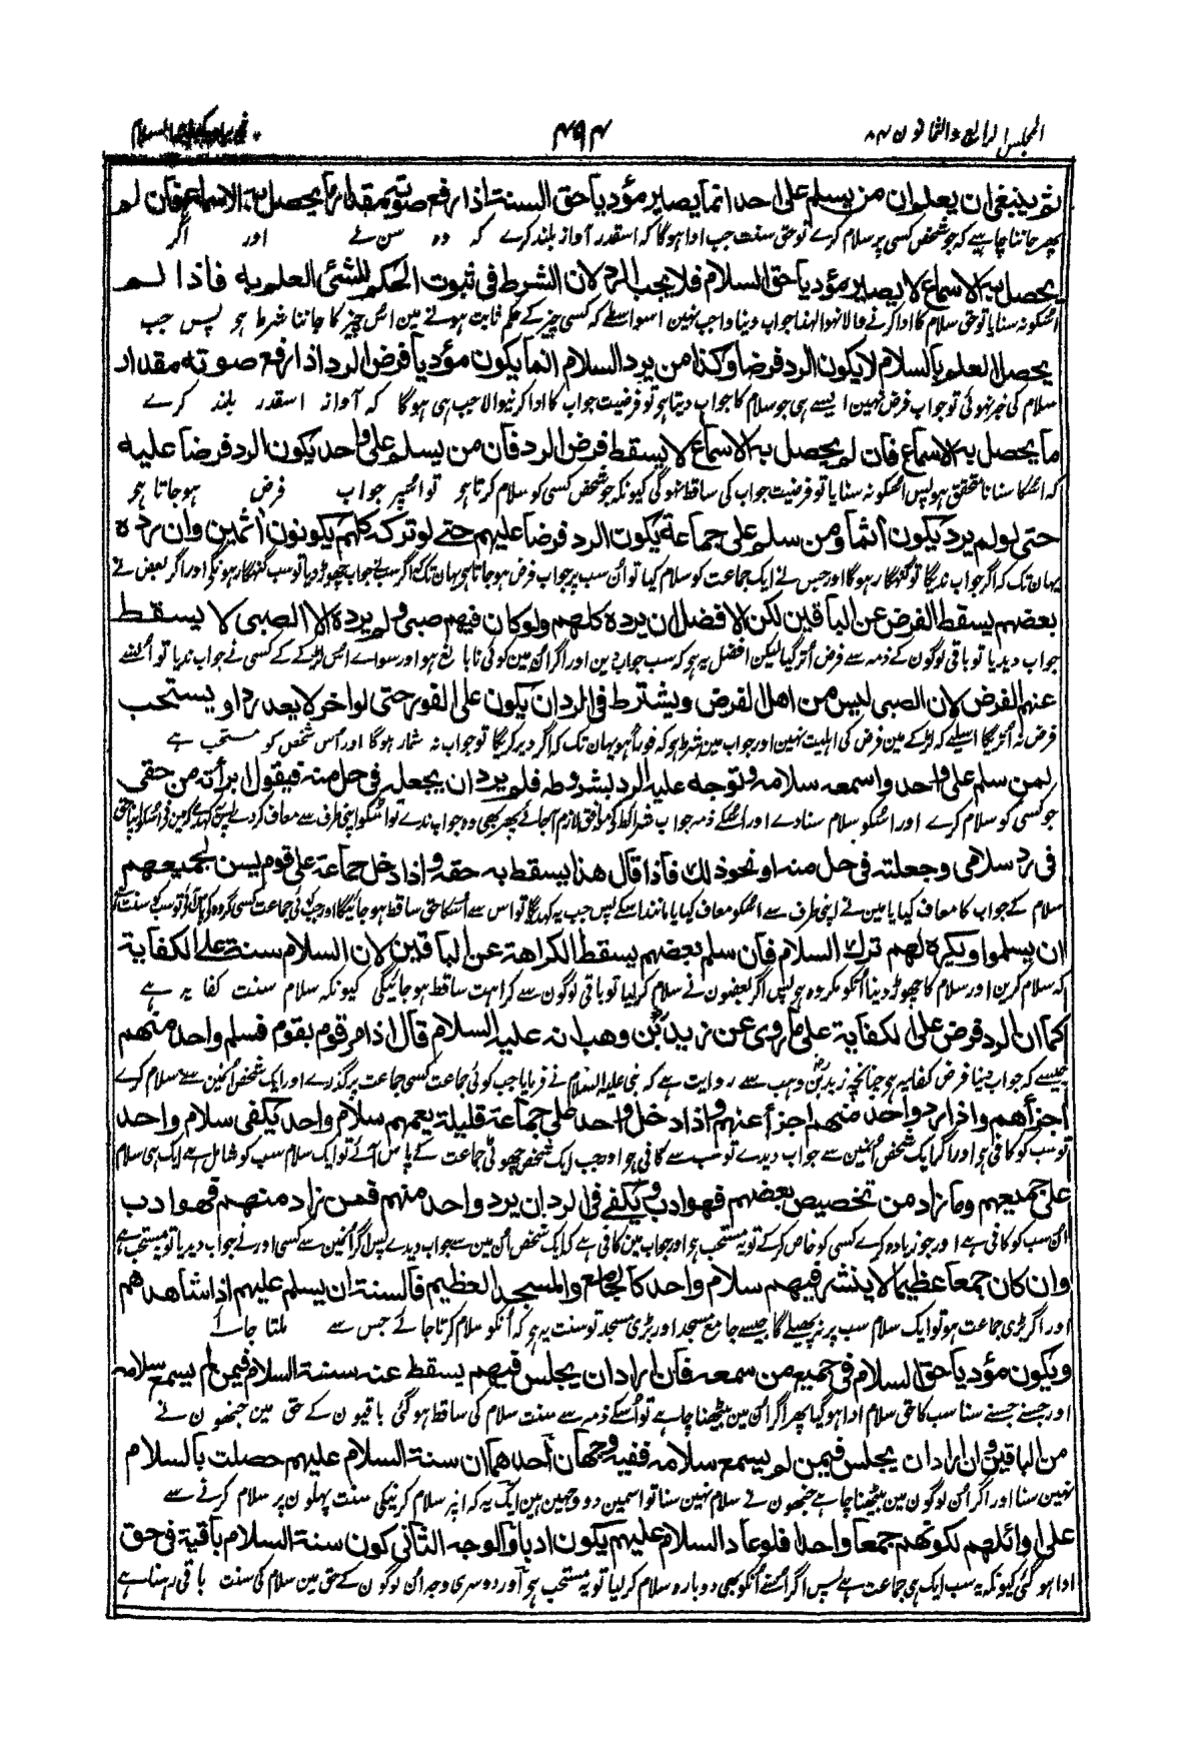 المجلس الرابع والثمانون ۸۴
۴۹۴
ثم ينبغي ان يعلم ان من يسلم على احد انما يصير مؤديا حق السنة اذا رفع صوته مقدار ما يحصل به الاسماع فان لم
پھر جاننا چاہیے کہ جو شخص کسی پر سلام کرے تو حق سنت جب ادا ہوگا کہ اسقدر آواز بلند کرے کہ وہ سن لے اور اگر
يحصل به الاسماع لا يصير مؤديا حق السلام فلا يجب الرد لان الشرط فى ثبوت الحكم للشئ العلم به فاذا لم
اسکو نہ سنایا تو حق سلام کا ادا کرنے والا نہوا لہذا جواب دینا واجب نہین اسواسطے کہ کسی چیز کے حکم ثابت ہونے مین اس چیز کا جاننا شرط ہو پس جب
يحصل العلم بالسلام لا يكون الرد فرضا وكذا من يرد السلام انما يكون مؤديا فرض الرد اذا رفع صوته مقدار
سلام کی خبر نہوئی تو جواب فرض نہین ایسے ہی جو سلام کا جواب دیتا ہو تو فرضیت جواب کا ادا کرنیوالا جب ہی ہوگا کہ آواز اسقدر بلند کرے
ما يحصل به الاسماع فان لم يحصل به الاسماع لا يسقط فرض الرد فان من يسلم على واحد يكون الرد فرضا عليه
کہ اسکا سنانا متحقق ہو پس اسکو نہ سنایا تو فرضیت جواب کی ساقط نہوگی کیونکہ جو شخص کسی کو سلام کرتا ہو تو اسپر جواب فرض ہوجاتا ہو
حتى لو لم يرد يكون آثما ومن سلم على جماعة يكون الرد فرضا عليهم حتے لو تركه كلهم يكونون آثمين وان رده
یہان تک کہ اگر جواب ندیگا تو گنہگار ہوگا اور جس نے ایک جماعت کو سلام کیا تو اُن سب پر جواب فرض ہوجاتا ہو یہان تک کہ اگر سب نے جواب چھوڑ دیا تو سب گنہگار ہونگے اور اگر بعض نے
بعضهم يسقط الفرض عن الباقين لكن الافضل ان يرده كلهم ولو كان فيهم صبى ولم يرده الا الصبى لا يسقط
جواب دیدیا تو باقی لوگون کے ذمہ سے فرض اُتر گیا لیکن افضل یہ ہو کہ سب جواب دین اور اگر اُن مین کوئی نابالغ ہو اور سواے اس لڑکے کے کسی نے جواب ندیا تو اُنسے
عنهم الفرض لان الصبى ليس من اهل الفرض ويشترط فى الرد ان يكون على الفور حتى لو اخر لا يعد ردا ويستحب
فرض نہ اُتریگا اسلیے کہ لڑکے مین فرض کی اہلیت نہین اور جواب مین شرط ہو کہ فوراً ہو یہان تک کہ اگر دیر کریگا تو جواب نہ شمار ہوگا اور اُس شخص کو مستحب ہے
لمن سلم على واحد واسمعه سلامه وتوجه عليه الرد بشروطه فلم يرد ان يجعله فى حل منه فيقول ابرأته من حقى
جو کسی کو سلام کرے اور اسکو سلام سنادے اور اسکے ذمہ جواب شرائط کے موافق لازم آجائے پھر بھی وہ جواب ندے تو اسکو اپنی طرف سے معاف کردے
فى رد سلامى وجعلته فى حل منه او نحو ذلك فاذا قال هذا يسقط به حقه واذا دخل جماعة على قوم يسن لجميعهم
سلام کے جواب کا معاف کیا یا مین نے اپنی طرف سے اسکو معاف کیا یا مانند اسکے پس جب یہ کہدیگا تو اس سے اُسکا حق ساقط ہوجائیگا اور جب کوئی جماعت کسی گروہ
ان يسلموا ويكره لهم ترك السلام فان سلم بعضهم يسقط الكراهة عن الباقين لان السلام سنة على الكفاية
کہ سلام کرین اور سلام کا چھوڑ دینا اُنکو مکروہ ہو پس اگر بعضون نے سلام کرلیا تو باقی لوگون سے کراہت ساقط ہوجائیگی کیونکہ سلام سنت کفایہ ہے
كما ان الرد فرض على الكفاية على ما روى عن زيد بن وهب انه عليه السلام قال اذا مر قوم بقوم فسلم واحد منهم
جیسے کہ جواب دینا فرض کفایہ ہو چنانچہ زید بن وہب سے روایت ہے کہ نبی علیہ السلام نے فرمایا جب کوئی جماعت کسی جماعت پر گذرے اور ایک شخص اُنمین سے سلام کرے
اجزأهم واذا رد واحد منهم اجزأ عنهم واذا دخل واحد على جماعة قليلة يعمهم سلام واحد يكفى سلام واحد
تو سب کو کافی ہو اور اگر ایک شخص اُنمین سے جواب دیدے تو سب سے کافی ہو اور جب ایک شخص چھوٹی جماعت کے پاس آئے تو ایک سلام سب کو شامل ہے ایک ہی سلام
على جميعهم وما زاد من تخصيص بعضهم فهو ادب ويكفے فى الرد ان يرد واحد منهم فمن زاد منهم فهو ادب
اُن سب کو کافی ہے اور جو زیادہ کرے کسی کو خاص کرکے تو یہ مستحب ہو اور جواب مین کافی ہے کہ ایک شخص اُن مین سے جواب دیدے پس اگر اُنمین سے کسی اور نے جواب دیدیا تو یہ مستحب ہے
وان كان جمعا عظيما لا ينتشر فيهم سلام واحد كالجامع والمسجد العظيم فالسنة ان يسلم عليهم اذا شاهدهم
اور اگر بڑی جماعت ہو تو ایک سلام سب پر نہ پھیلے گا جیسے جامع مسجد اور بڑی مسجد تو سنت یہ ہو کہ اُنکو سلام کرتا جائے جس سے ملتا جائے
ويكون مؤديا حق السلام فى جميع من سمعه فان اراد ان يجلس فيهم يسقط عنه سنة السلام فيمن لم يسمع سلامه
اور جسنے جسنے سنا سب کا حق سلام ادا ہوگیا پھر اگر اُن مین بیٹھنا چاہے تو اُسکے ذمہ سے سنت سلام کی ساقط ہوگئی باقیون کے حق مین جنھون نے
من الباقين وان اراد ان يجلس فيمن لم يسمع سلامه ففيه وجهان احدهما ان سنة السلام عليهم حصلت بالسلام
نہین سنا اور اگر اُن لوگون مین بیٹھنا چاہے جنھون نے سلام نہین سنا تو اسمین دو وجہین ہین ایک یہ کہ اُنپر سلام کرنیکی سنت پہلون پر سلام کرنے سے
على اوائلهم لكونهم جمعا واحدا فلو عاد السلام عليهم يكون ادبا والوجه الثانى كون سنة السلام باقية فى حق
ادا ہوگئی کیونکہ یہ سب ایک ہی جماعت ہے پس اگر اُنسے اُنکو بھی دوبارہ سلام کرلیا تو یہ مستحب ہو اور دوسری وجہ اُن لوگون کے حق مین سلام کی سنت باقی رہنا ہے